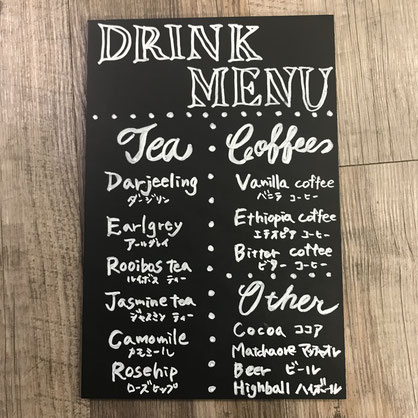 DRINK
MENU
Tea
Darjeeling
ダージリン
Earlgrey
アールグレイ
Rooibos Tea
ルイボス ティー
Jasmine tea
ジャスミン ティー
Camomile
カミミール
Rosehip
ローズヒップ
Coffees
Vanilla coffee
バニラ コーヒー
Ethiopia coffee
エチオピア コーヒー
Bitter coffee
ビター コーヒー
Other
Cocoa ココア
Matchaore マッチャオレ
Beer ビール
Highball ハイボール